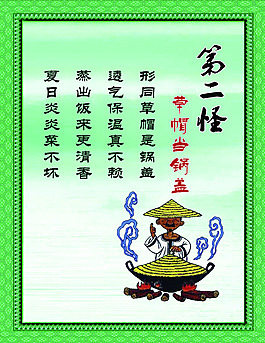 第二怪
草帽当锅盖
形同草帽是锅盖
透气保温真不赖
蒸出饭来更清香
夏日炎炎菜不坏